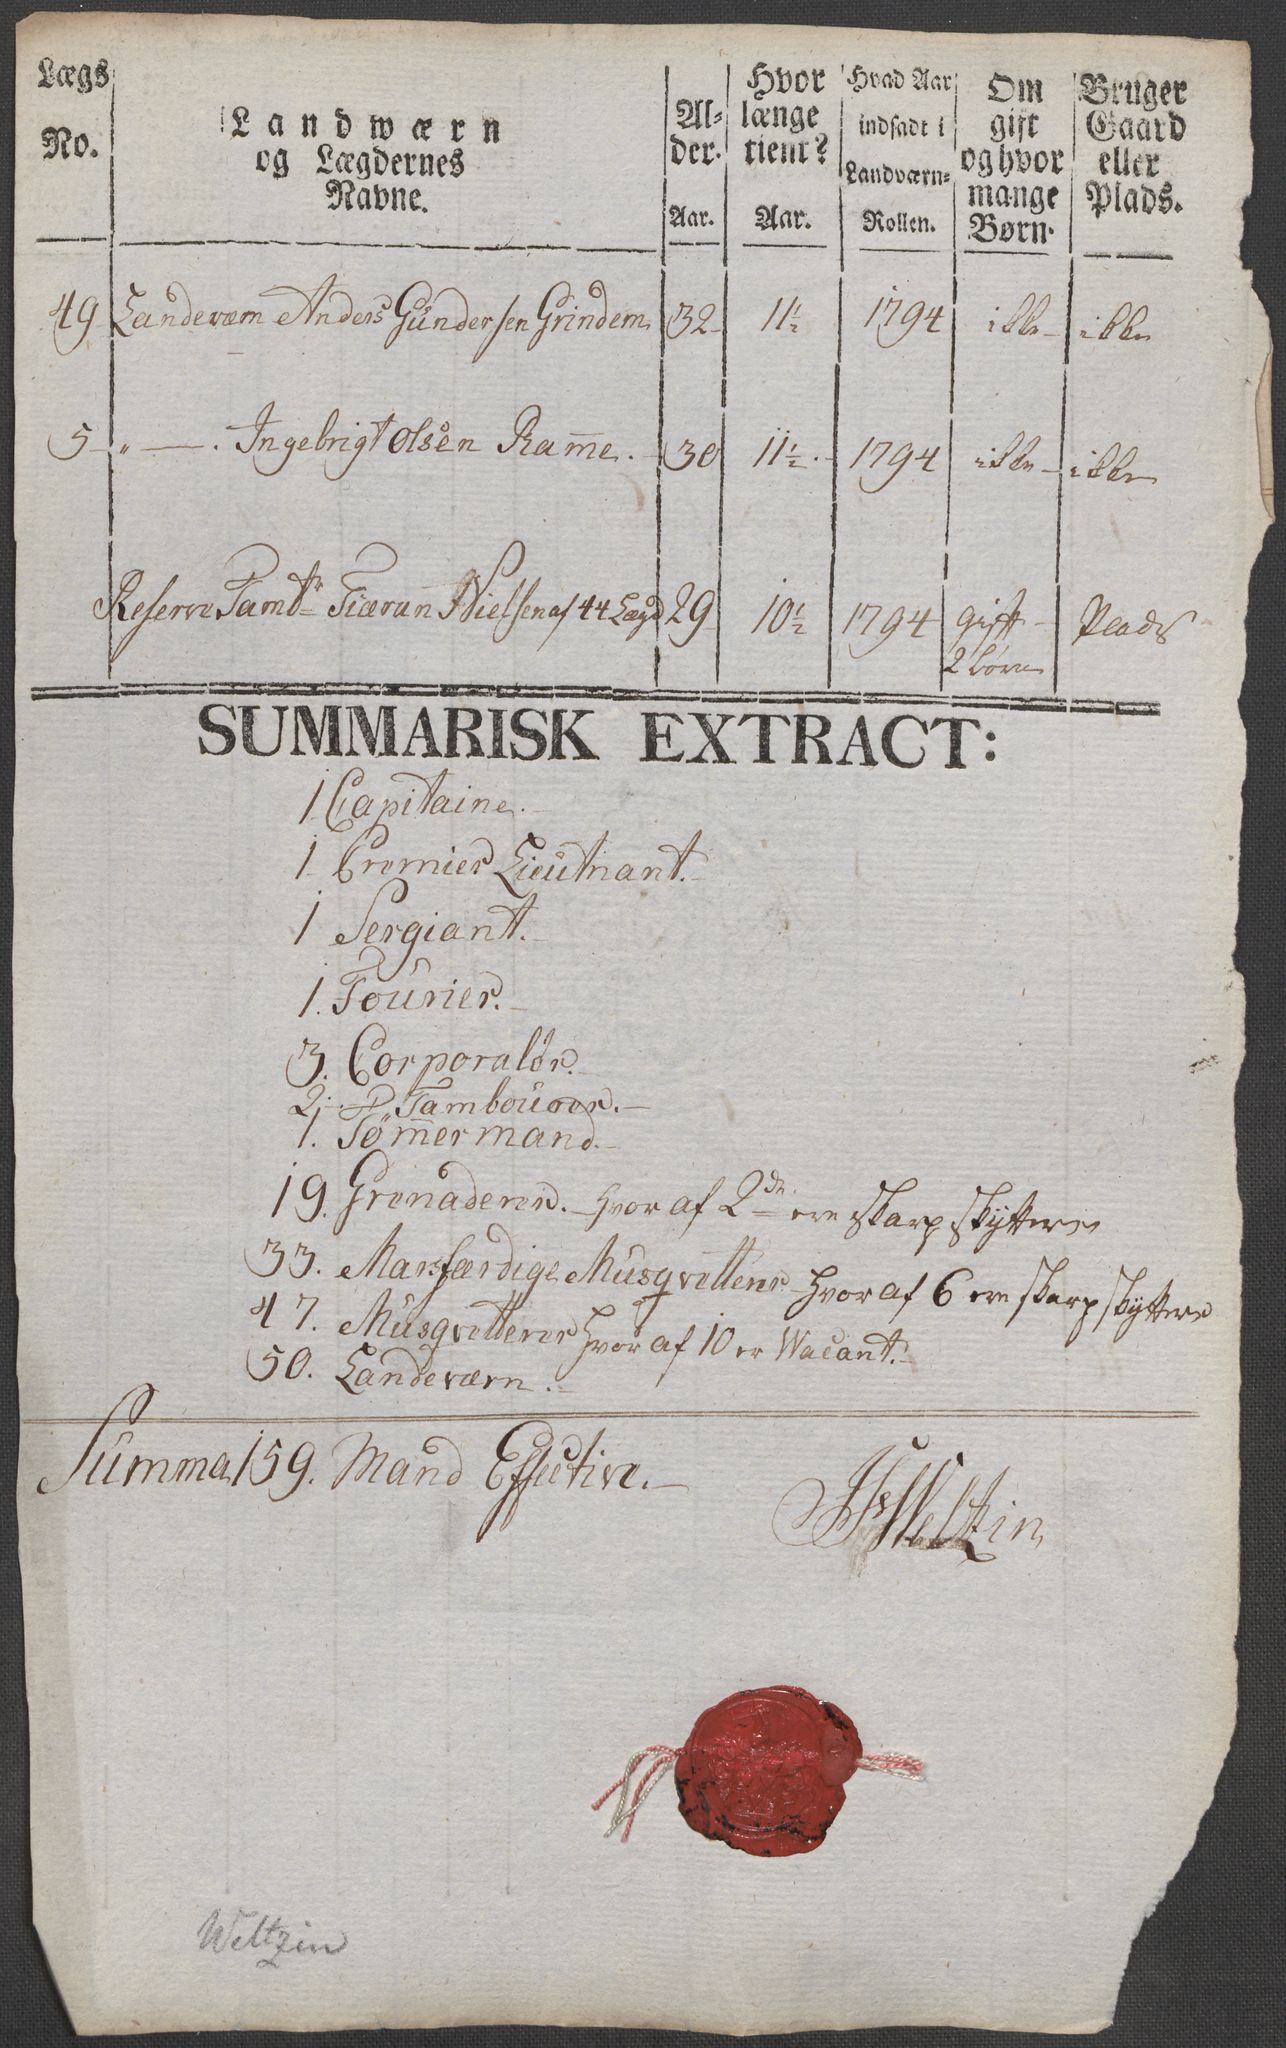 Lægs No.
Landwærn og Lægdernes Navne.
Al-der. Aar.
Hvor længe tient? Aar.
Hvad Aar indsadt i Landværn-Rollen.
Om gift og hvor mange Børn.
Bruger Gaard eller Plads.
49 Landeværn Anders Gündersen Grindem 32 11½ 1794 ikke ikke
5 " — . Ingebrigt Olsen Ram̅e. 30 11½. 1794 ikke ikke
Reserve Tambr Nielsen af 44 Lægd 29 10½ 1794 gift Plads
2 børn
SUMMARISK EXTRACT:
1 Capitaine.
1 Premier Lieutnant.
1 Sergiant.
1. Fourier.
3. Corporaler.
2. Tambourer.
1. Töm̅ermand.
19. Grenaderer. hvor af 2de ere skarp skyttere
33. Marsfærdige Musqvetterer hvor af 6 ere skarp skyttere
47. Musqvetterer hvor af 10 er Wacant.
50. Landeværn.
Summa 159. Mand Effective.
Weltzin
Weltzin